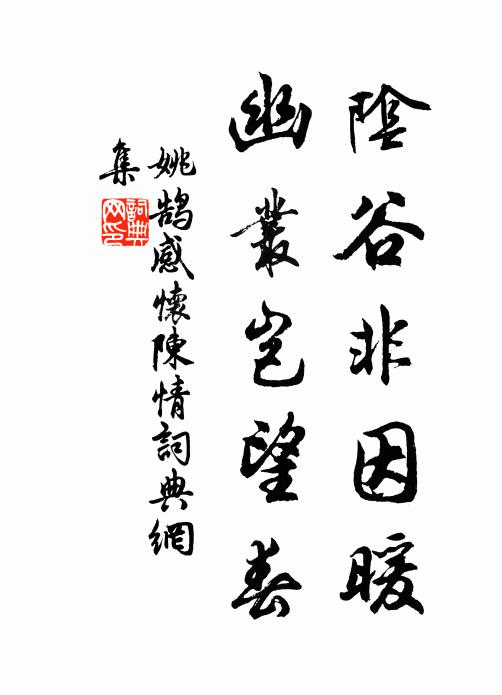 陰谷非因暖
幽叢豈望春
姚鵠感懷陳情詞典網
集
詞典
网印